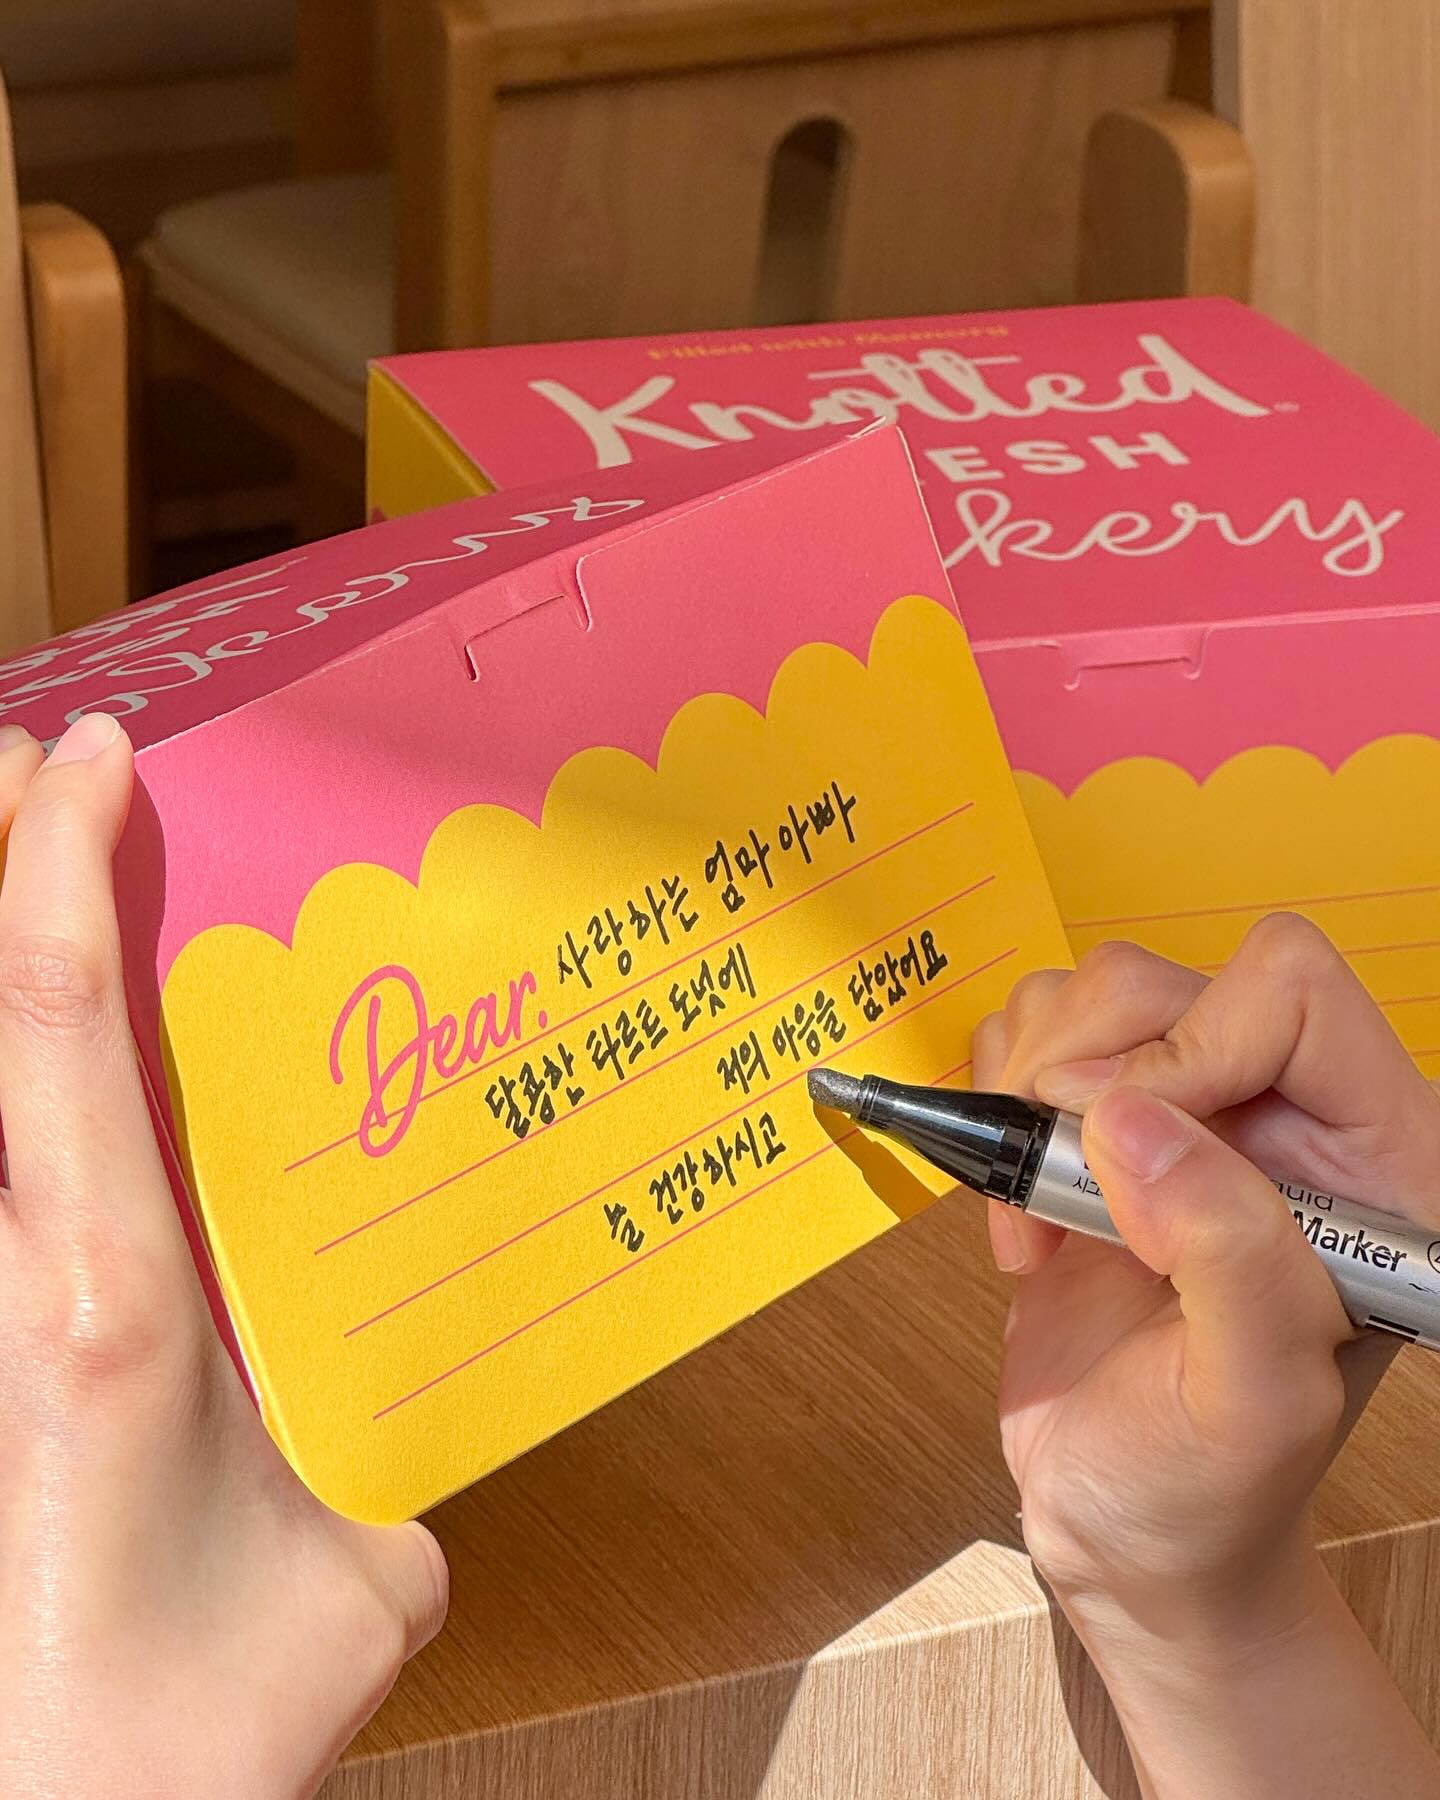 Filled with Memory
Knotted
ESH
kery
Dear. 사랑하는 엄마 아빠
달콤한 타르트 도넛에
저의 마음을 담았어요
늘 건강하시고
Marker